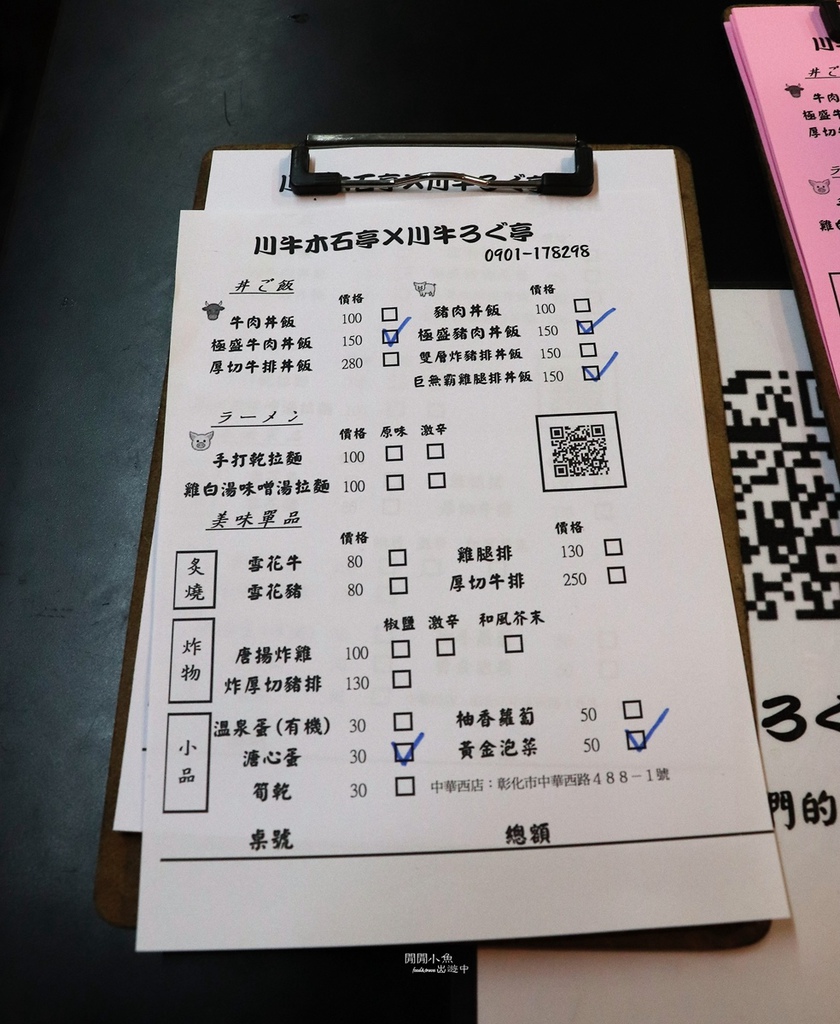 川牛木石亭X川牛ろぐ亭
0901-178298
丼ご飯
價格
牛肉丼飯 100 □
極盛牛肉丼飯 150 ☑
厚切牛排丼飯 280 □
價格
豬肉丼飯 100 □
極盛豬肉丼飯 150 ☑
雙層炸豬排丼飯 150 □
巨無霸雞腿排丼飯 150 ☑
ラーメン
價格 原味 激辛
手打乾拉麵 100 □ □
雞白湯味噌湯拉麵 100 □ □
美味單品
炙燒
價格
雪花牛 80 □
雪花豬 80 □
價格
雞腿排 130 □
厚切牛排 250 □
炸物
椒鹽 激辛 和風芥末
唐揚炸雞 100 □ □ □
炸厚切豬排 130 □
小品
溫泉蛋(有機) 30 □
溏心蛋 30 ☑
筍乾 30 □
柚香蘿蔔 50 □
黃金泡菜 50 ☑
中華西店：彰化市中華西路488－1號
桌號 總額
ろぐ
們的
閒閒小魚
出遊中